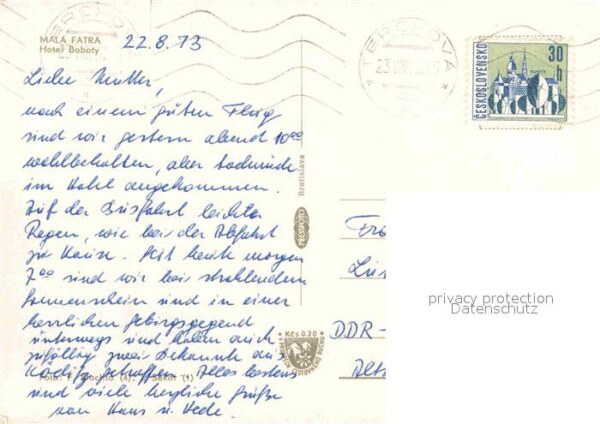 MALÁ FATRA
Hotel Boboty
22.8.73
Liebe Mutter,
nach einem guten Flug
sind wir gestern abend 10⁰⁰
wohlbehalten, aber todmüde
im Hotel angekommen.
Auf der Busfahrt leichter
Regen, wie bei der Abfahrt
zu Hause. Seit heute morgen
7⁰⁰ sind wir bei strahlendem
Sonnenschein sind in einer
herrlichen Gebirgsgegend
unterwegs und haben auch
zufällig zwei Bekannte aus
getroffen. Alles bestens
und viele herzliche Grüße
von Hans u. Hede
Foto:
(4),
(1)
TERCHOVÁ
TERCHOVÁ
23.VIII
ČESKOSLOVENSKO
30 h
Bratislava
PRESSFOTO
Kčs 0.20
Fra
Lü
DDR-
Alt
privacy protection
Datenschutz